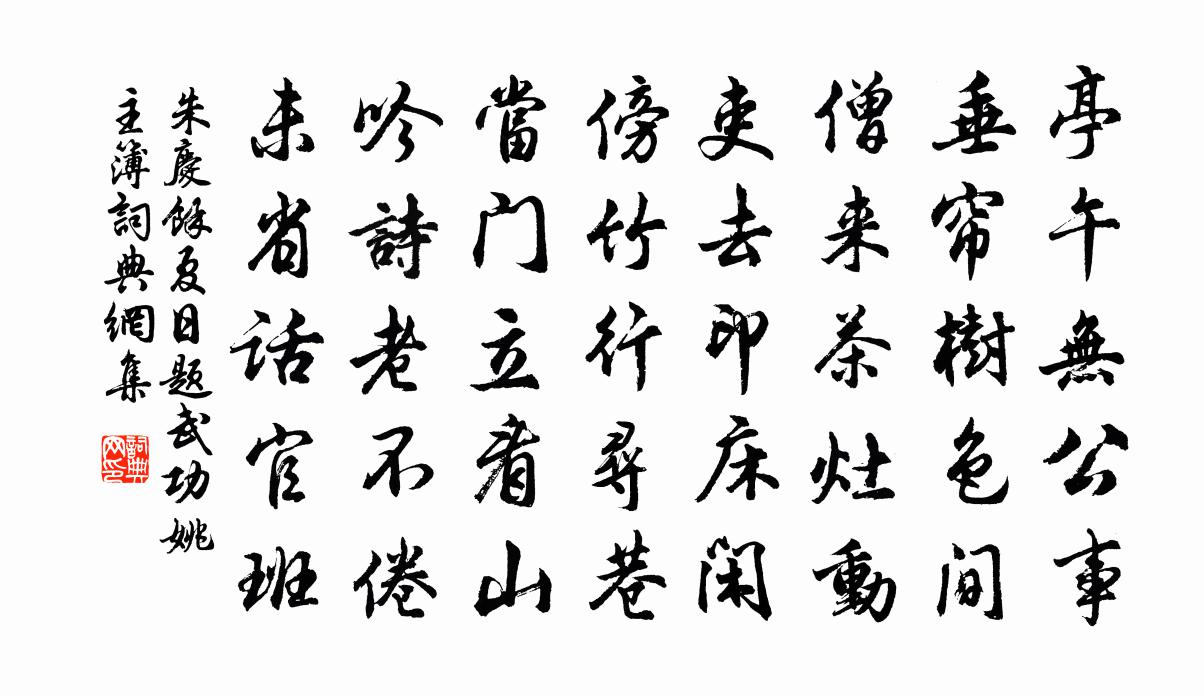 亭午無公事
垂帘樹色间
僧来茶灶動
吏去印床闲
傍竹行尋巷
當门立看山
吟詩老不倦
未省话官班
朱慶餘夏日題武功姚
主簿詞典網集
詞典网印